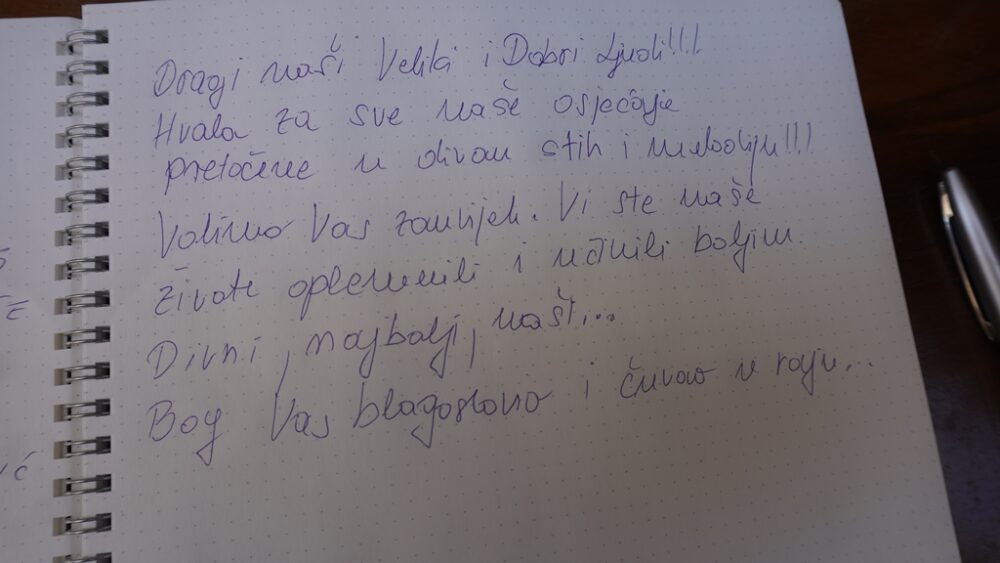 Dragi naši Veliki i Dobri Ljudi!!!!
Hvala za sve naše osjećaje
pretočene u divan stih i melodiju!!!
Volimo Vas zauvijek. Vi ste naše
živote oplemenili i učinili boljim.
Divni, najbolji, naši...
Bog Vas blagoslovio i čuvao u raju...